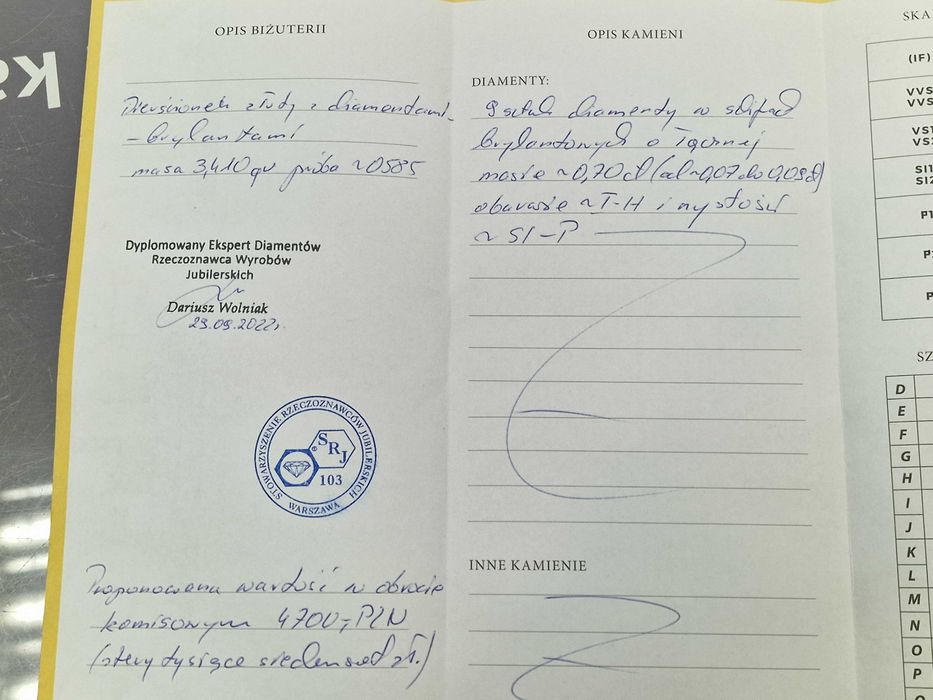 Ka
OPIS BIŻUTERII
Pierścionek złoty z diamentami-
-brylantami
masa 3,410 gr próba ~0585
Dyplomowany Ekspert Diamentów
Rzeczoznawca Wyrobów
Jubilerskich
Dariusz Wolniak
29.09.2022r.
STOWARZYSZENIE RZECZOZNAWCÓW JUBILERSKICH
WARSZAWA
SRJ
103
Proponowana wartość w obrocie
komisowym 4700,-PLN
(cztery tysiące siedemset zł.)
OPIS KAMIENI
DIAMENTY:
9 sztuk diamenty w szlifach
brylantowych o łącznej
masie ~0,70 ct (od ~0,07 do 0,09ct)
o barwie ~I-H i czystości
~ SI-P
INNE KAMIENIE
SKA
(IF)
VVS
VVS
VS1
VS2
SI1
SI2
P1
P
P
SZ
D
E
F
G
H
I
J
K
L
M
N
O
P